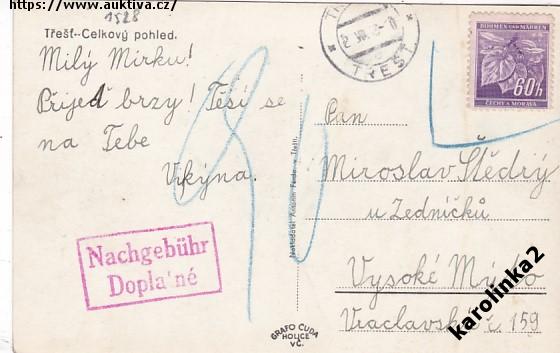 https://www.auktiva.cz/
1528
Třešť--Celkový pohled.
Milý Mirku!
Přijeď brzy! Těší se
na Tebe
Vikýna.
Nachgebühr
Doplatné
TŘEŠŤ
BÖHMEN UND MÄHREN
60h
ČECHY A MORAVA
Pan
Miroslav Štědrý
u Zedníčků
Vysoké Mýto
Vraclavská č. 159
GRAFO ČUDA
HOLICE
V Č.
karolinka2